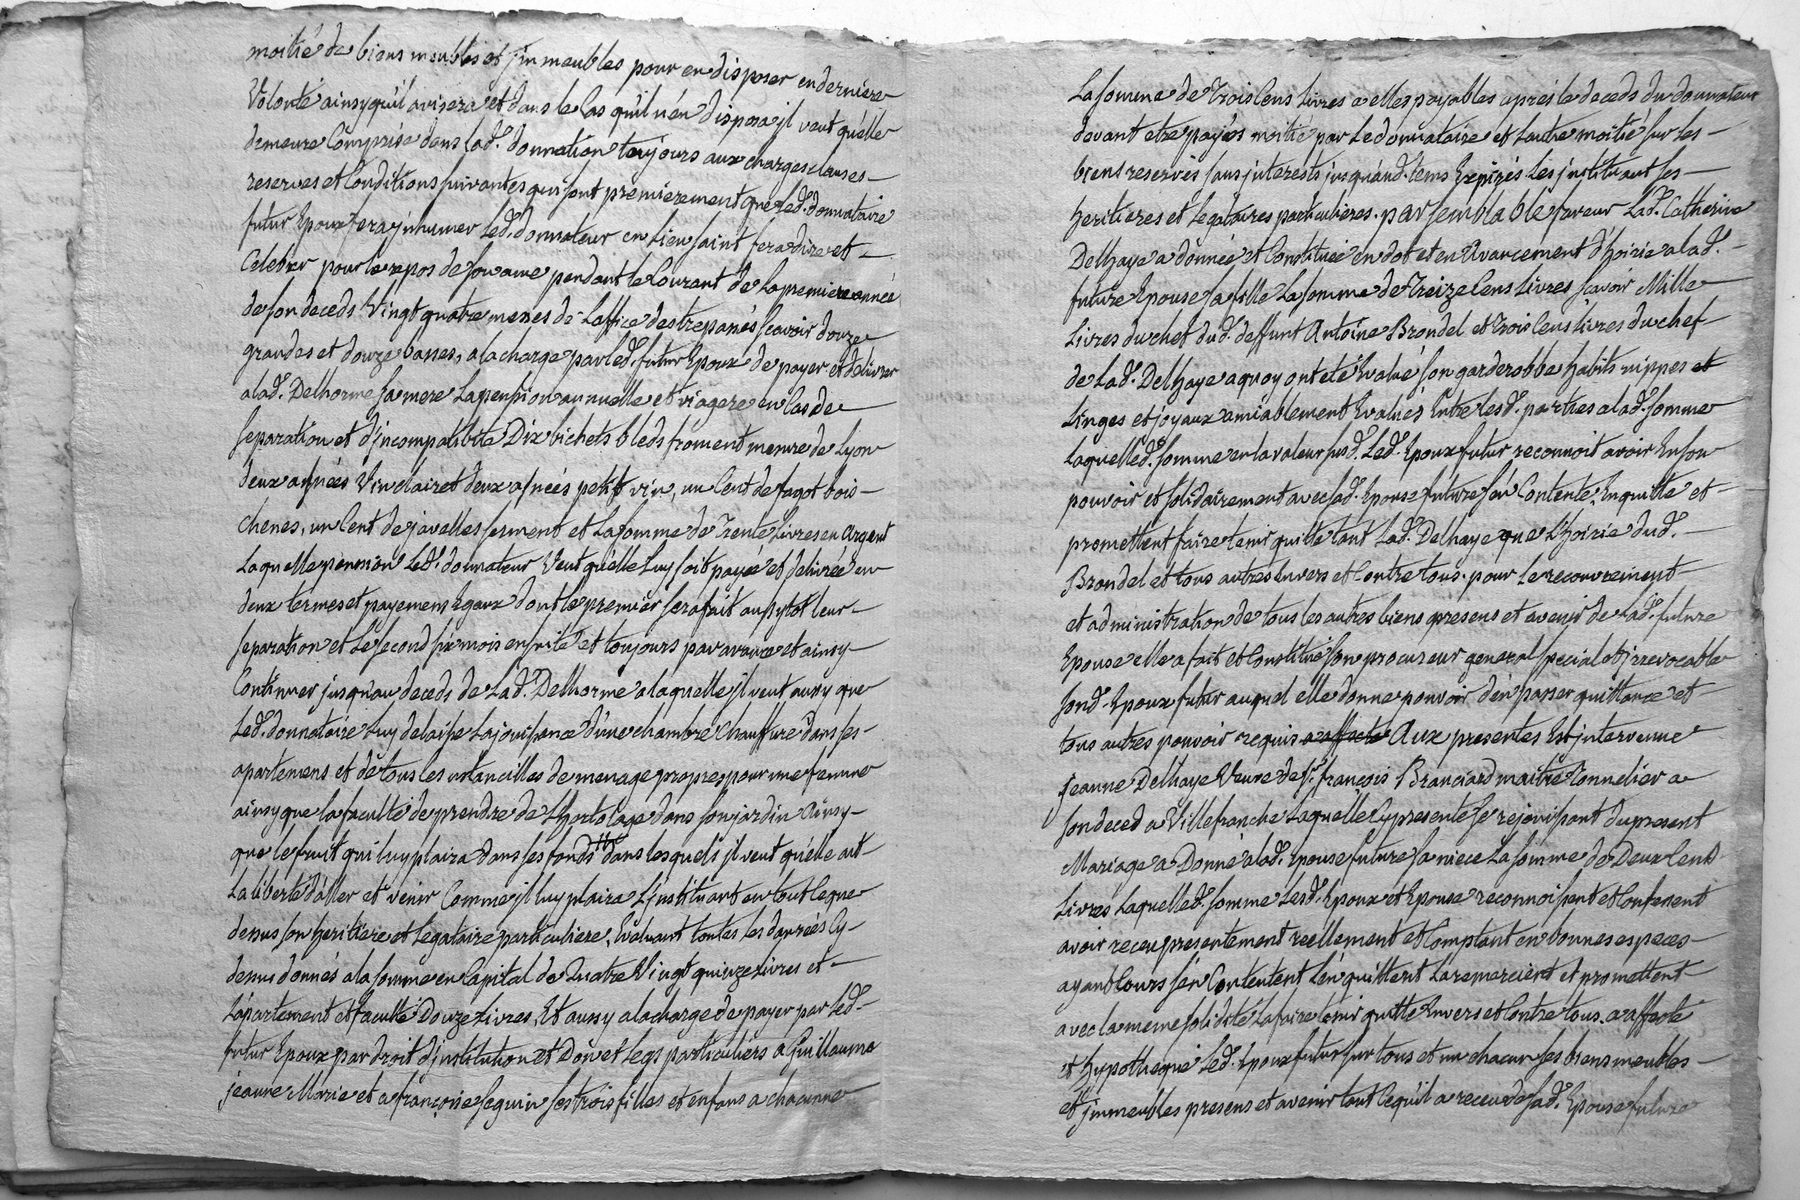 moitié de biens meubles et jmmeubles pour en disposer en derniere
Volonté ainsy quil avisera et dans le Cas quil n'en disposa jl veut qu'elle
demeure Comprise dans lad. donnation toujours aux charges clauses
reserves et Conditions suivantes qui sont premierement que led. donnataire
futur Epoux fera jnhumer led. donnateur en Lieu saint fera dire et
Celebrer pour le repos de son ame pendant le Courant de la premiere année
de son deceds Vingt quatre messes de L'office des trepassés scavoir douze
grandes et douze basses, a la charge par led. futur Epoux de payer et delivrer
a lad. Delhorme sa mere La pension annuelle et viagere en Cas de
separation et d'incompatibité Dix bichets bleds froment mesure de Lyon
deux asnées Vin clair et deux asnées petit vin, un Cent de fagot bois
chenes, un Cent de javelles serment et La somme de Trente Livres en Argent
Laquelle pension Led. donnateur Veut qu'elle Luy soit payée et delivrée en
deux termes et payemens Egaux dont le premier sera fait aussytôt leur
separation et Le second six mois ensuite et toujours par avance et ainsy
Continuer jusqu'au deceds de Lad. Delhorme a laquelle jl veut aussy que
Led. donnataire Luy delaisse La jouissance d'une chambre chauffure dans ses
apartemens et de tous les ustancilles de menage propres pour une femme
ainsy que la faculté de prendre de L'hortolage dans son jardin Ainsy
que le fruit qui luy plaira dans ses fonds dans lesquels jl veut qu'elle ait
La liberté d'aller et venir Comme jl luy plaira L'jnstituant en tout Ce que
dessus son heritiere et Legataire particuliere, Evaluant toutes les danrées Cy
dessus donnés a la somme en Capital de Quatre Vingt quinze livres et
L'apartement et faculté Douze Livres, Et aussy a la charge de payer par Led.
futur Epoux par droit d'jnstitution et Don et Legs particuliers a Guillaume
jeanne Marie et a françoise Seguin ses trois filles et enfans a chacunne
La somme de Trois Cens Livres a elles payables apres le deceds du donnateur
devant etre payées moitié par Le donnataire et L'autre moitié sur les
biens reservés sans jnterests jusqu'aud. tems Expirés Les jnstituant ses
heritieres et Legataires particulieres. par semblable faveur Lad. Catherine
Delhaye a donnée et Constituée en dot et en Avancement d'hoirie a lad.
future Epouse sa fille La somme de Treize Cens Livres scavoir Mille
Livres du chef dud. deffunt Antoine Brondel et Trois Cens livres du chef
de Lad. Delhaye a quoy ont eté Evalué son garderobbe habits nippes et
Linges et joyaux amiablement Evalués Entre lesd. parties a lad. somme
Laquelled. somme en la valeur susd. Led. Epoux futur reconnoit avoir En son
pouvoir et solidairement avec sad. Epouse future s'en Contente, En quitte et
promettent faire tenir quitte tant Lad. Delhaye que L'hoirie dud.
Brondel et tous autres Envers et Contre tous. pour Le recouvrement
et administration de tous les autres biens presens et avenir de Lad. future
Epouse elle a fait et Constitué son procureur general special et jrrevocable
sond. Epoux futur auquel elle donne pouvoir d'en passer quittance et
tous autres pouvoir requis a affecté Aux presentes Est jntervenue
Jeanne Delhaye Veuve de sr. françois Branciard maitre Tonnelier a
son deced a Villefranche Laquelle Cy presente se rejouissant du present
Mariage a Donné a lad. Epouse future sa niece La somme de Deux Cens
Livres Laquelled. somme Lesd. Epoux et Epouse reconnoissent et Confessent
avoir receu presentement reellement et Comptant en bonnes especes
ayant Cours s'en Contentent L'en quittent La remercient et promettent
avec la meme solidité La faire tenir quitte Envers et Contre tous. a affecté
et hypothequé Led. Epoux futur sur tous et un chacun ses biens meubles
et jmmeubles presens et avenir tout Ce quil a receu de sad. Epouse future